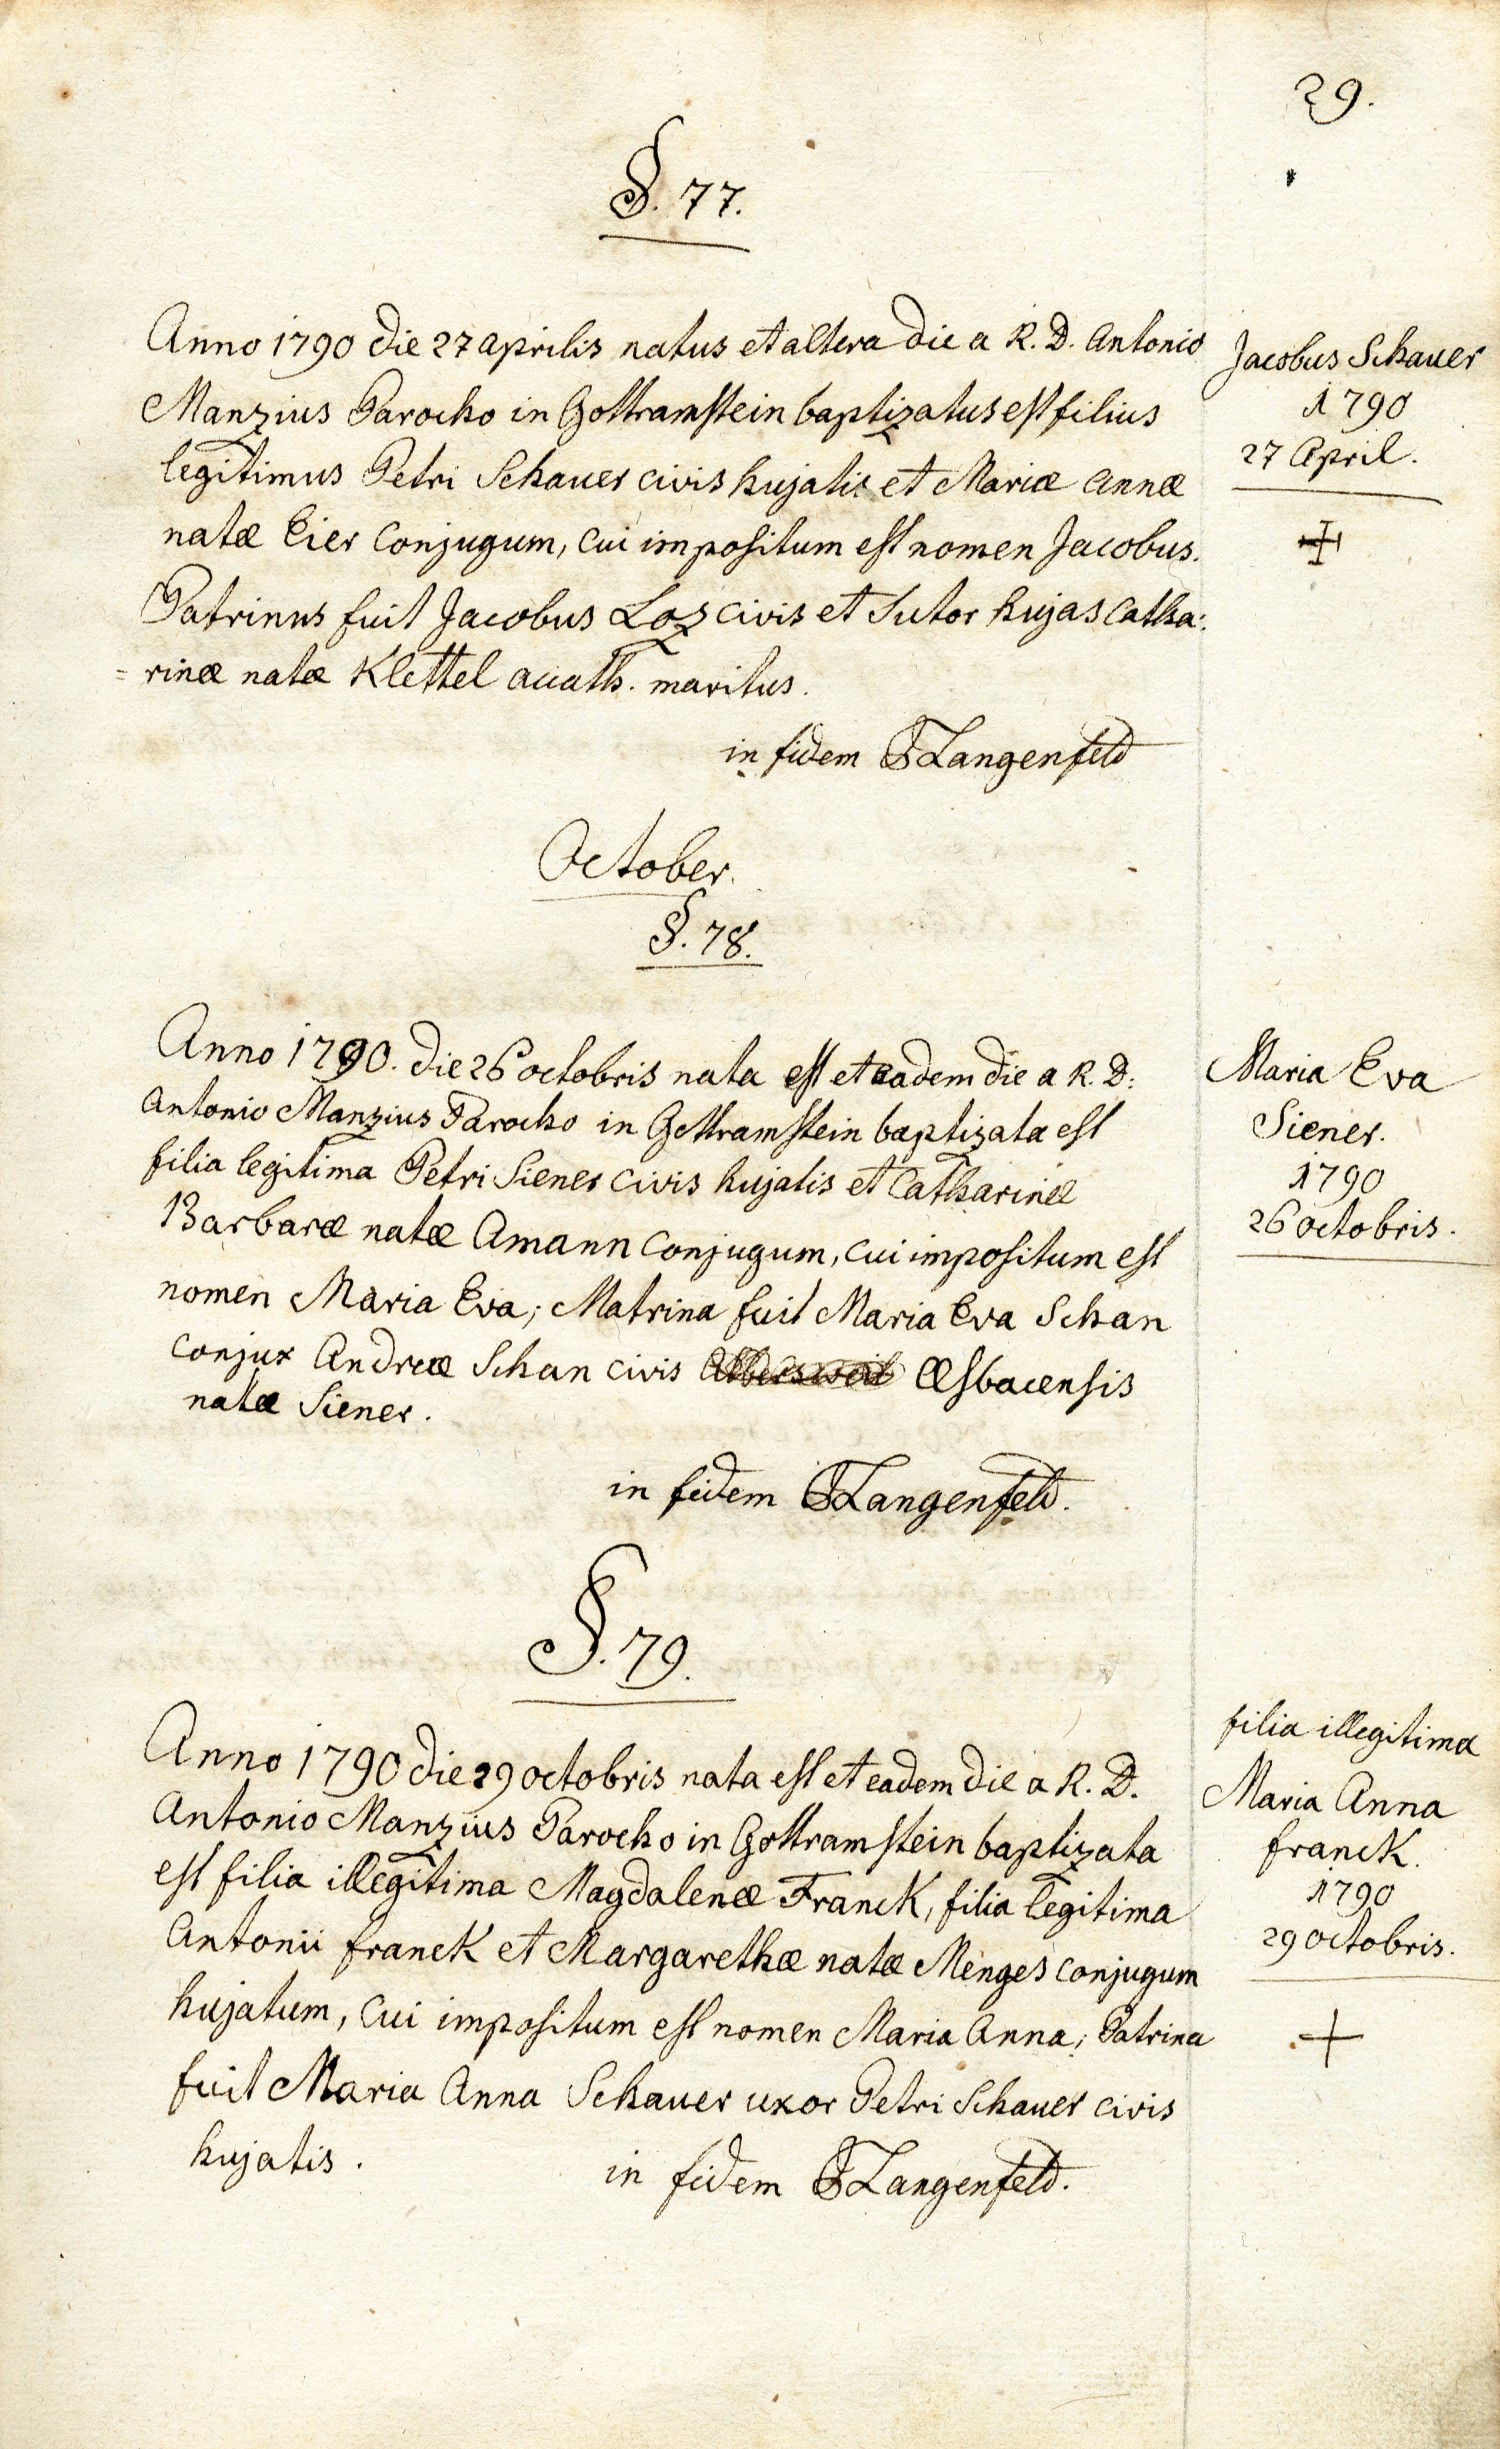 29.
§. 77.
Anno 1790 die 27 aprilis natus et altera die a R. D. Antonio
Manzius Parocho in Gottramstein baptizatus est filius
legitimus Petri Schauer civis hujatis et Mariæ Annæ
natæ Eier Conjugum, cui impositum est nomen Jacobus.
Patrinus fuit Jacobus Loz civis et Sutor hujas Catha:
= rinæ natæ Klettel acath. maritus.
in fidem Langenfeld
Jacobus Schauer
1790
27 April.
October.
§. 78.
Anno 1790. die 26 octobris nata est et eadem die a R. D:
Antonio Manzius Parocho in Gottramstein baptizata est
filia legitima Petri Siener civis hujatis et Catharinæ
Barbaræ natæ Amann Conjugum, cui impositum est
nomen Maria Eva; Matrina fuit Maria Eva Schan
Conjux Andreæ Schan civis Æsbacensis
natæ Siener.
in fidem Langenfeld.
Maria Eva
Siener.
1790
26 octobris.
§. 79.
Anno 1790 die 29 octobris nata est et eadem die a R. D.
Antonio Manzius Parocho in Gottramstein baptizata
est filia illegitima Magdalenæ Franck, filia legitima
Antonii franck et Margarethæ natæ Menges conjugum
hujatum, Cui impositum est nomen Maria Anna; Patrina
fuit Maria Anna Schauer uxor Petri Schauer civis
hujatis.
in fidem Langenfeld.
filia illegitima
Maria Anna
franck.
1790
29 octobris.